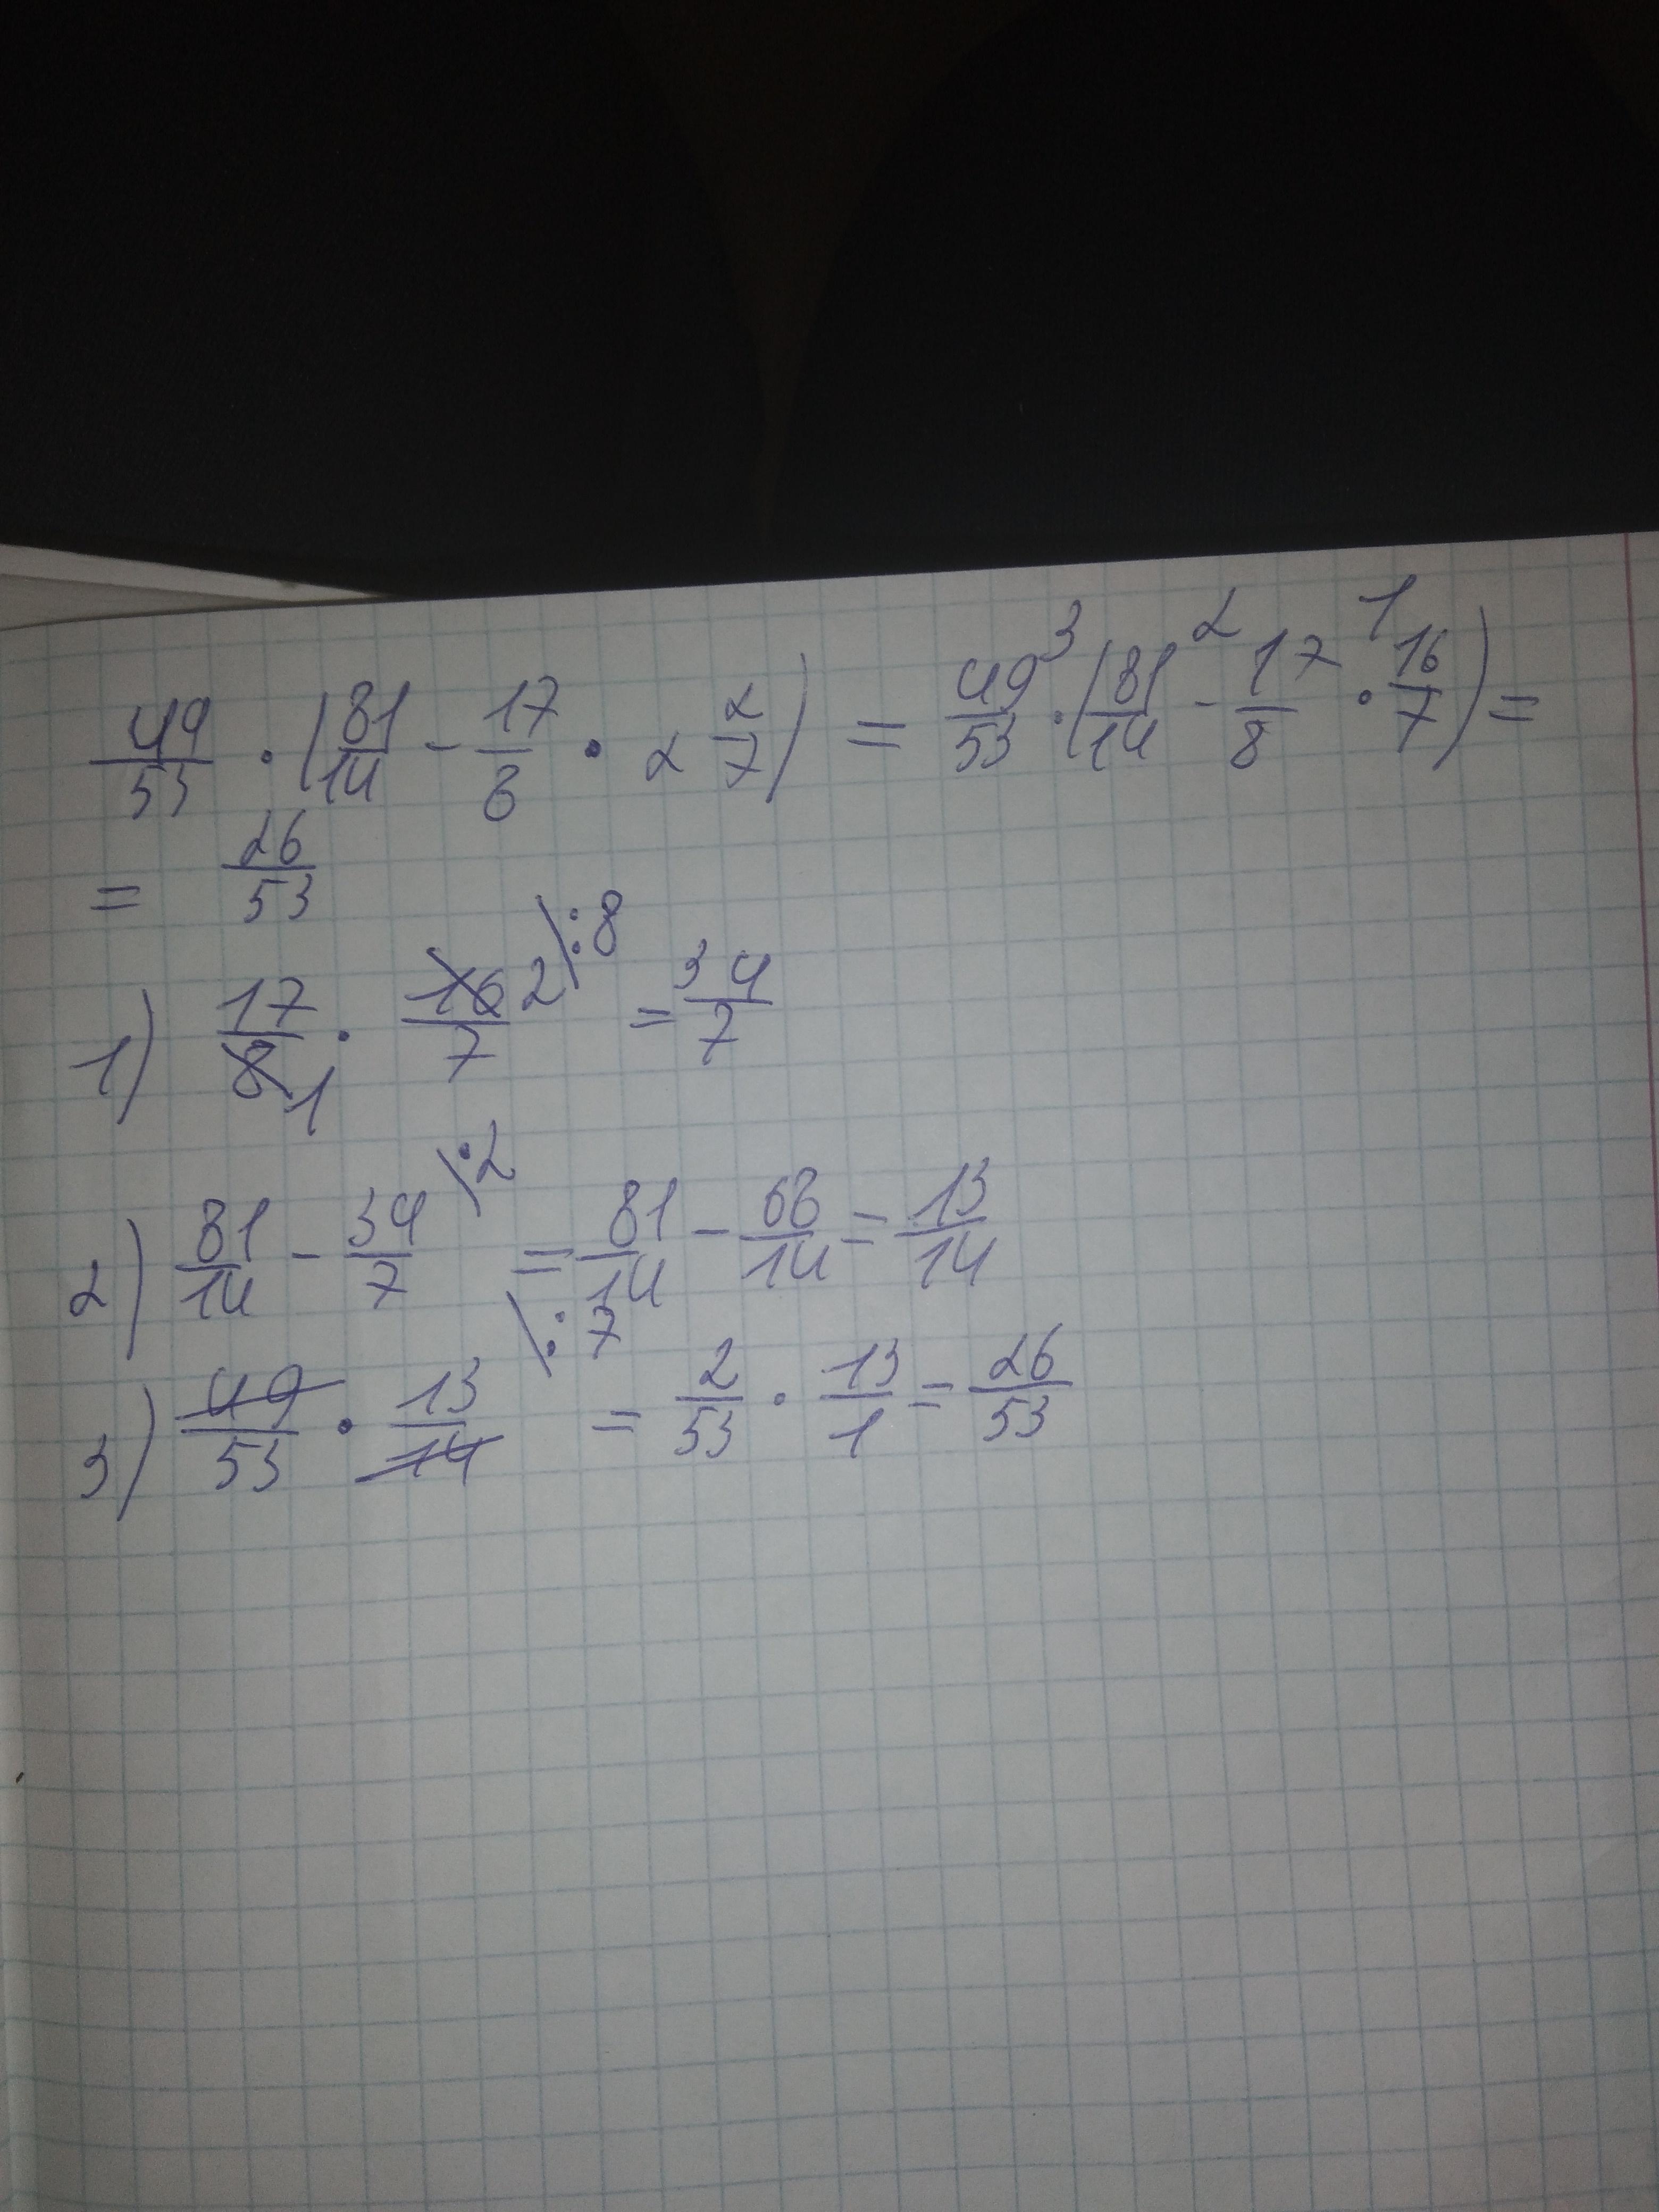 49/53 · (81/14 - 17/8 · 2 2/7) = 49/53 ³· (81/14 ²- 17/8 ¹· 16/7) =
= 26/53
1) 17/8 1 · 16/7 2 \:8 = 34/7
2) 81/14 - 34/7 \:2 = 81/14 - 68/14 = 13/14
3) 49/53 · 13/14 \:7 = 2/53 · 13/1 = 26/53